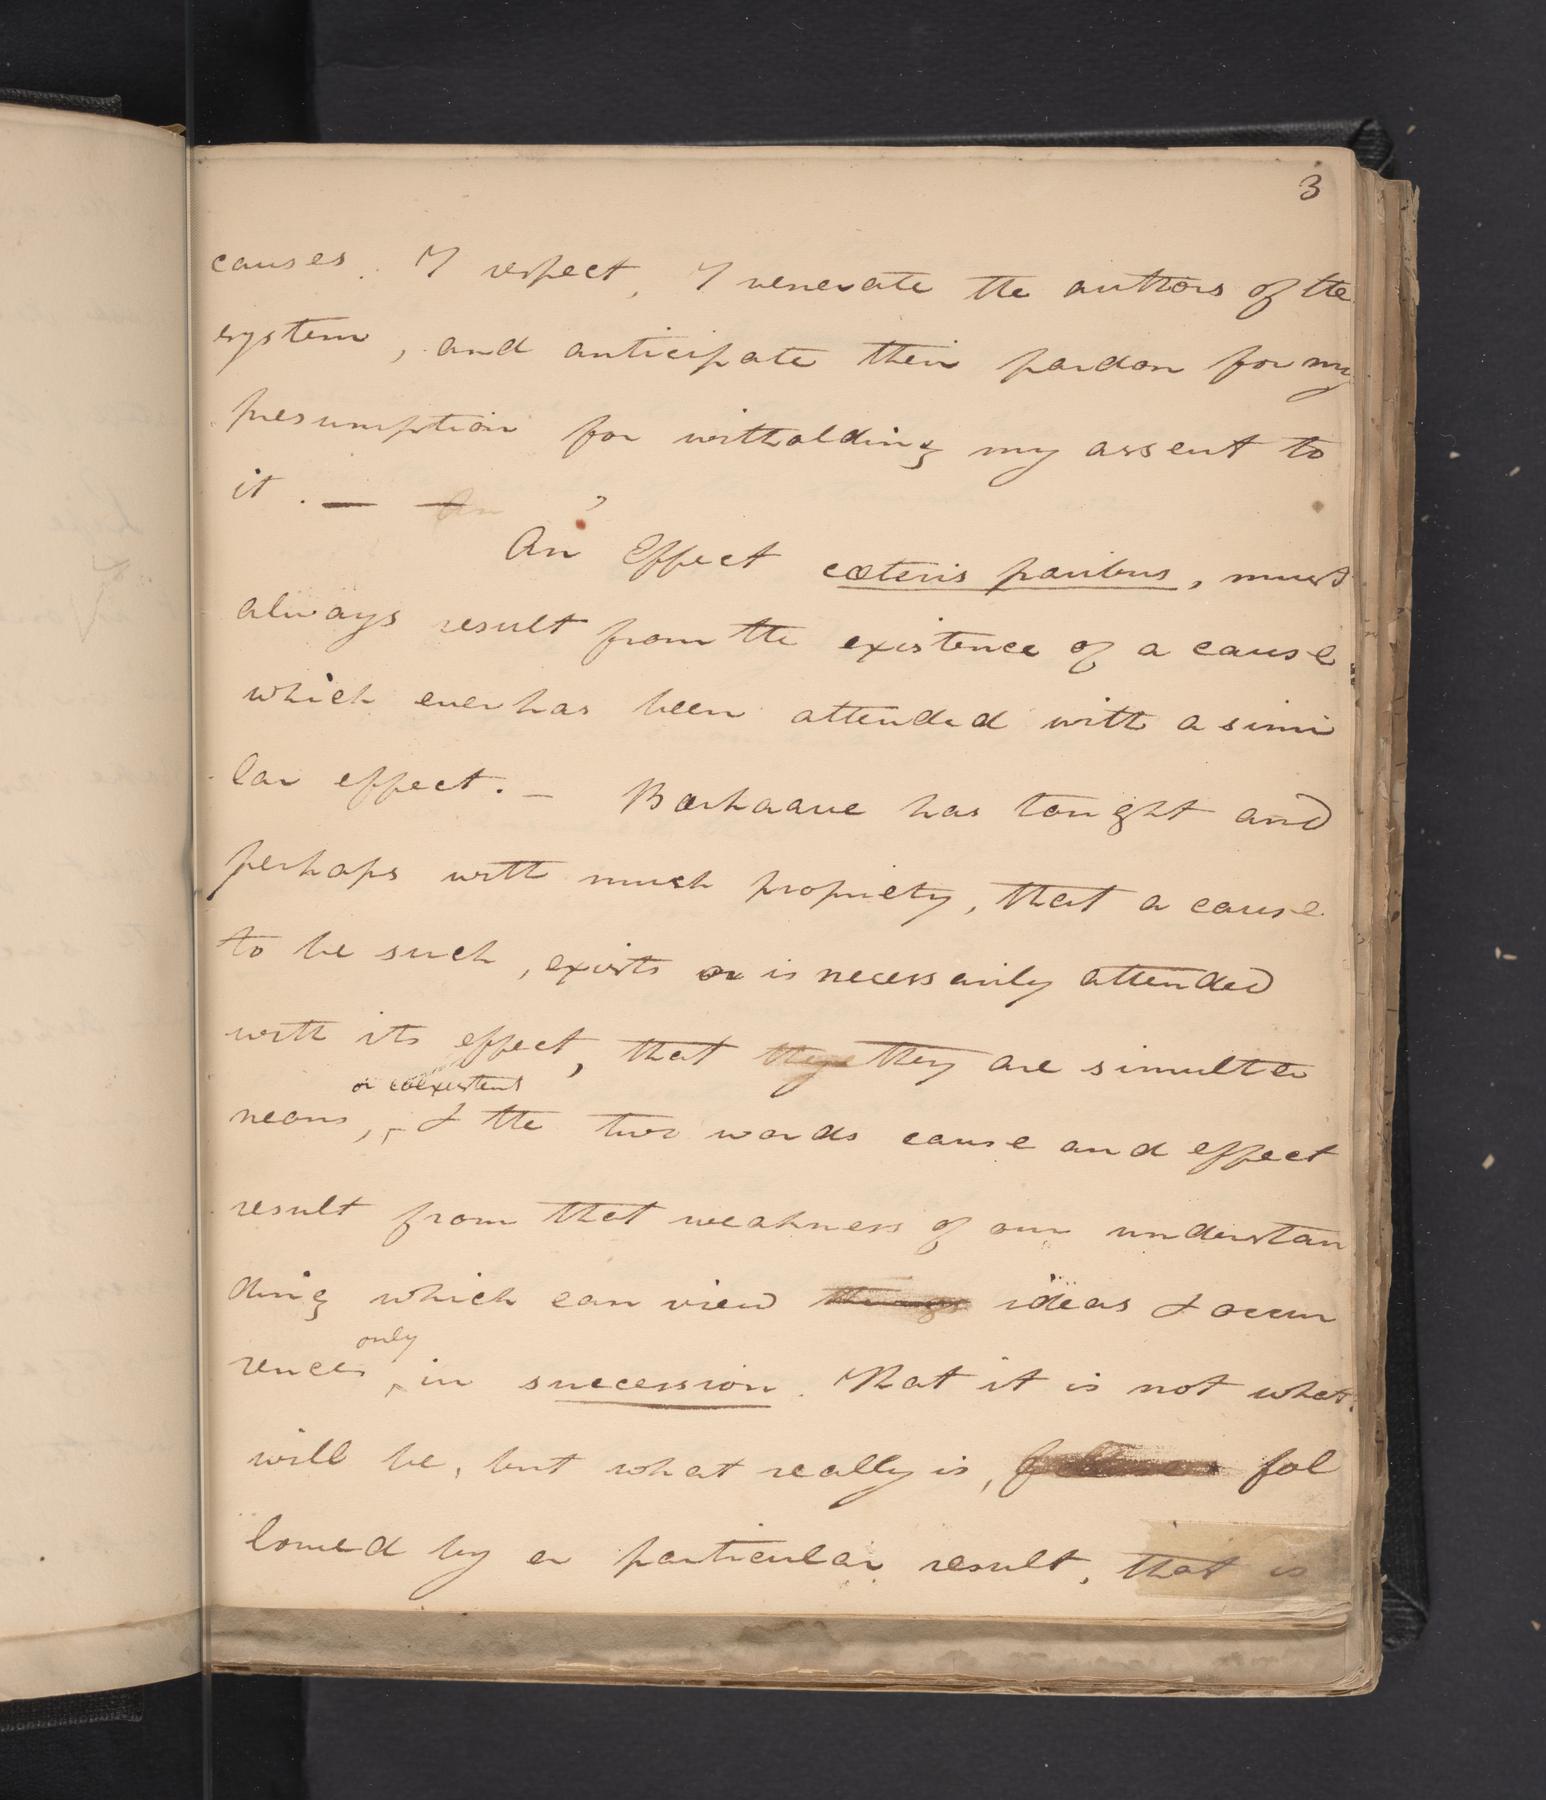 3
causes. I respect, I venerate the authors of the
system, and anticipate their pardon for my
presumption for witholding my assent to
it. — An
An Effect cæteris paribus, must
always result from the existence of a cause
which ever has been attended with a simi
lar effect. — Bœrhaave has tought and
perhaps with much propriety, that a cause
to be such, exists or is necessarily attended
with its effect, that they are simulta
or coexistent
neous, & the two words cause and effect
result from that weakness of our understan
ding which can view things ideas & occur
only
rences in succession. That it is not what
will be, but what really is, fol
lowed by a particular result, that is